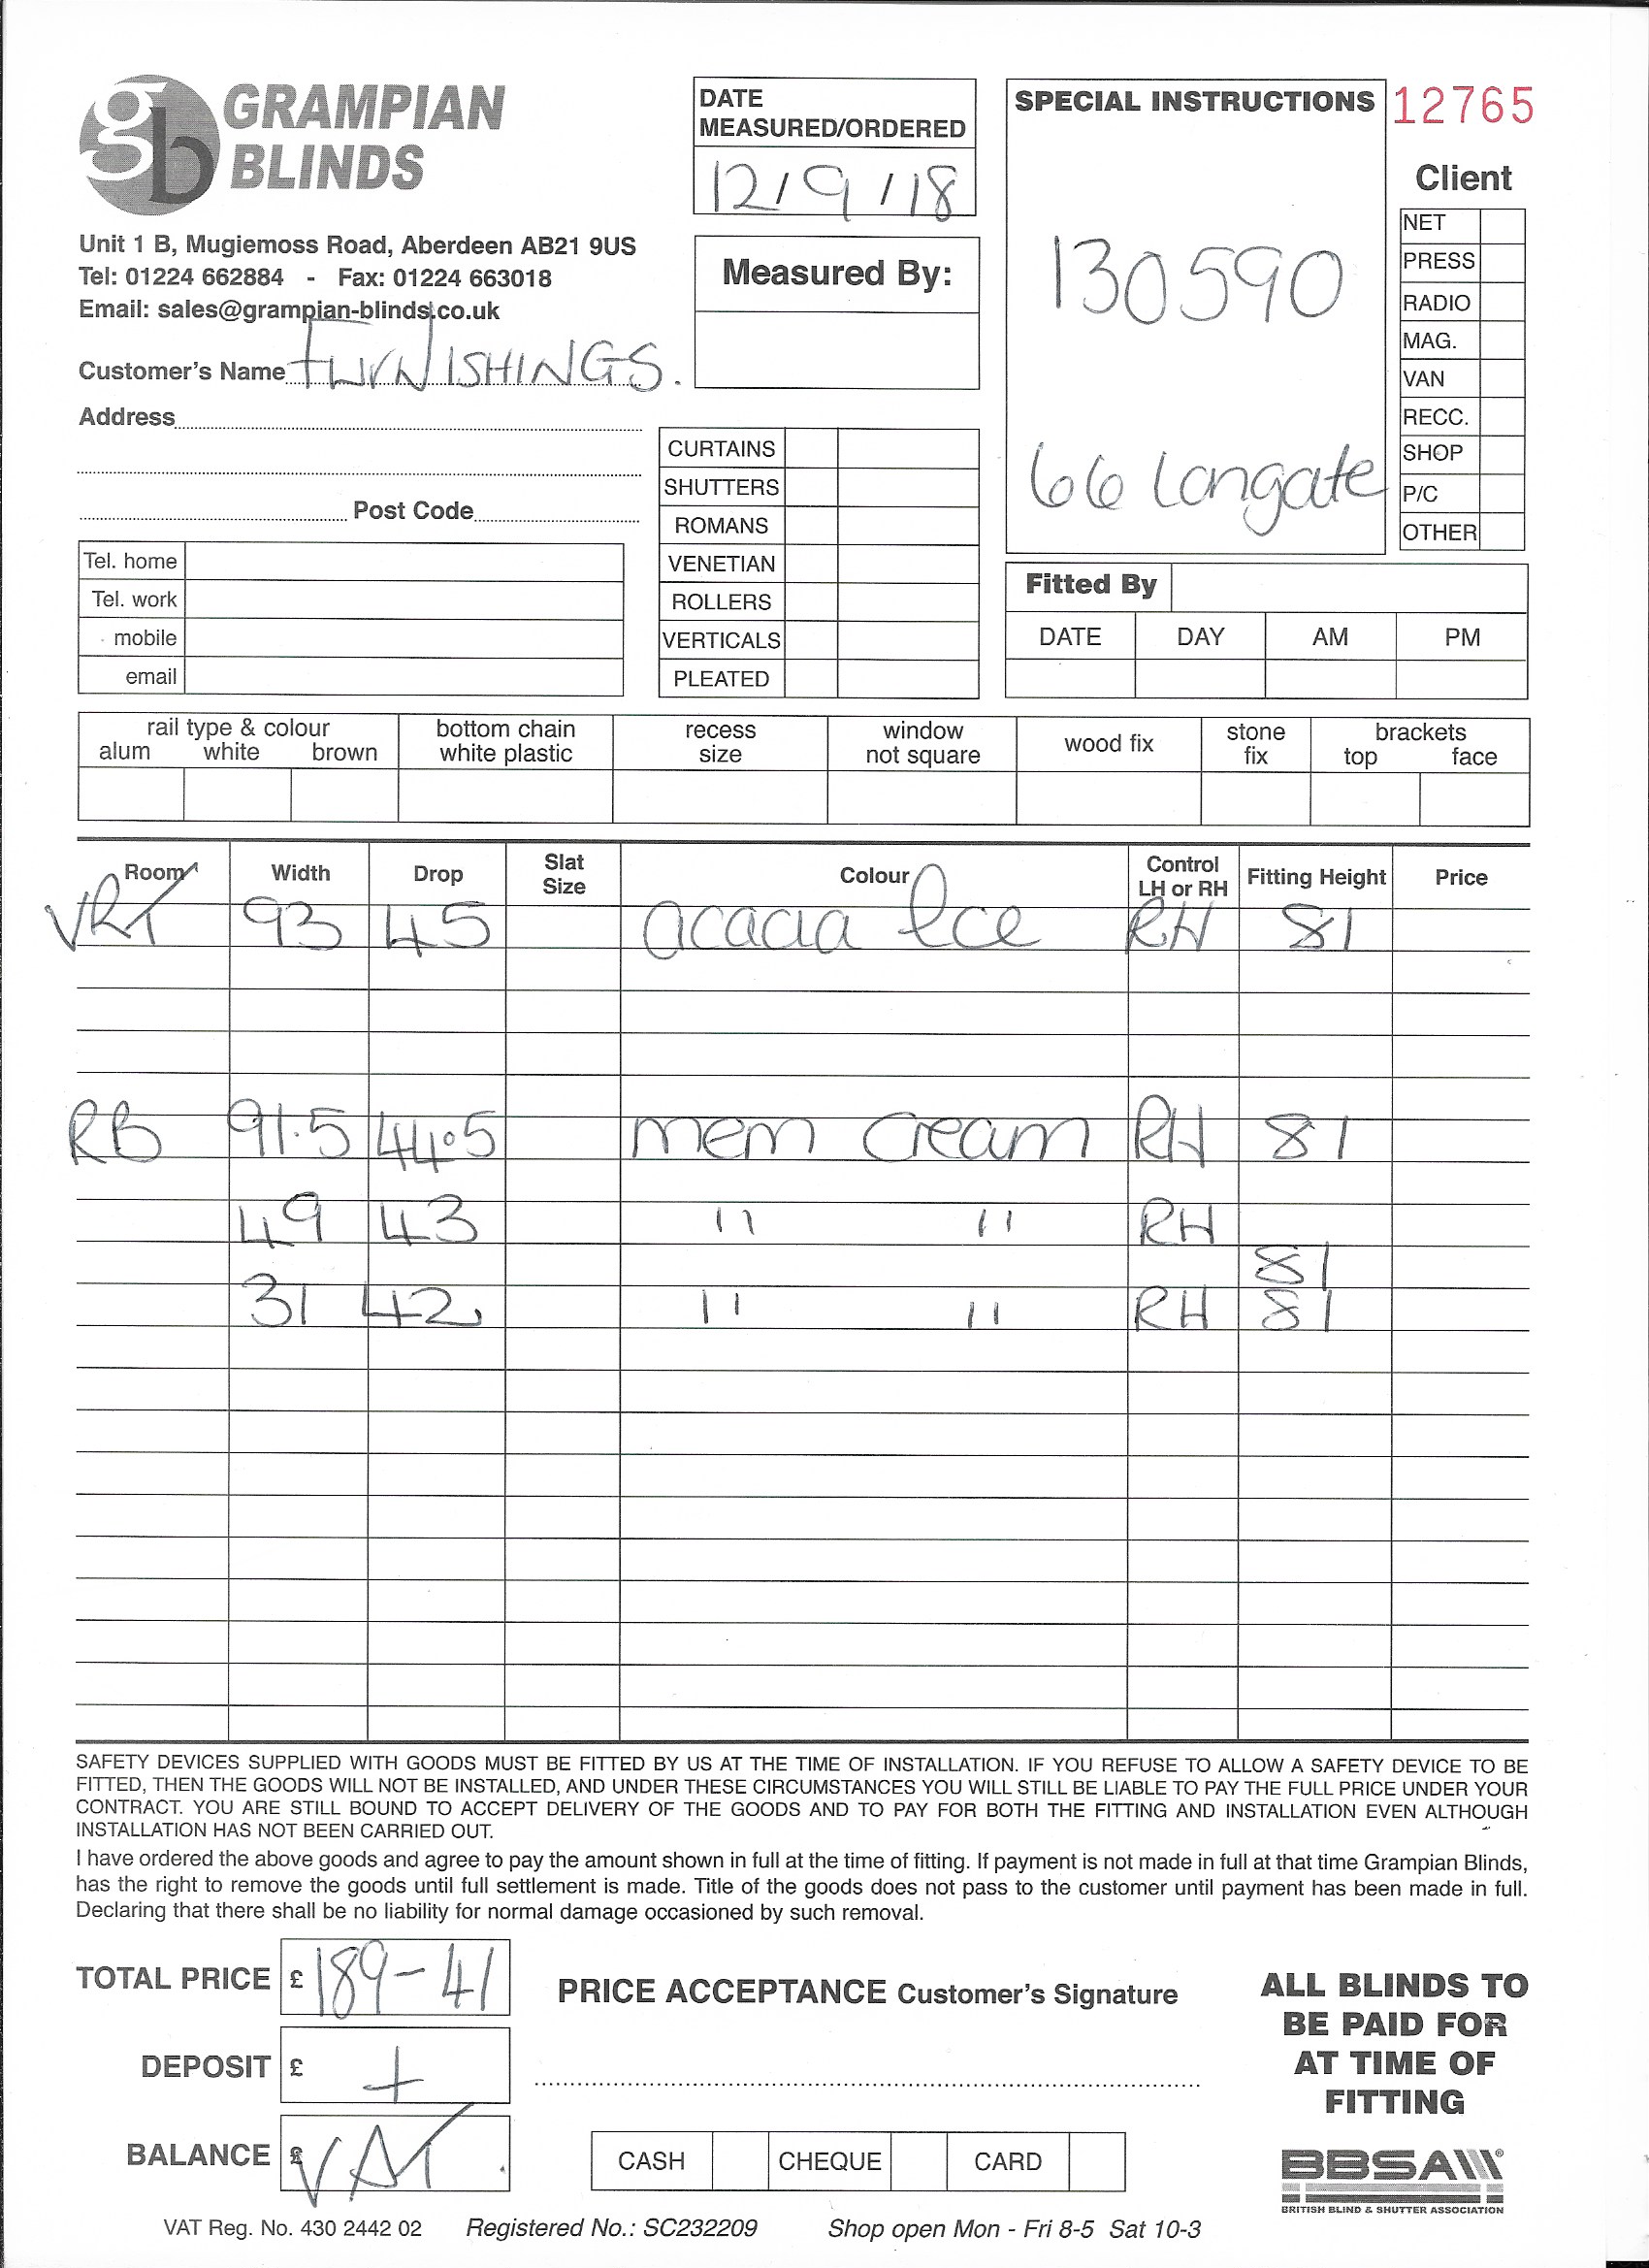 gb GRAMPIAN BLINDS
Unit 1 B, Mugiemoss Road, Aberdeen AB21 9US
Tel: 01224 662884 - Fax: 01224 663018
Email: sales@grampian-blinds.co.uk
Customer's Name FURNISHINGS.
Address
Post Code
Tel. home
Tel. work
mobile
email
DATE
MEASURED/ORDERED
12/9/18
Measured By:
CURTAINS
SHUTTERS
ROMANS
VENETIAN
ROLLERS
VERTICALS
PLEATED
SPECIAL INSTRUCTIONS
130590
66 Longate
12765
Client
NET
PRESS
RADIO
MAG.
VAN
RECC.
SHOP
P/C
OTHER
Fitted By
DATE DAY AM PM
rail type & colour
alum white brown
bottom chain
white plastic
recess
size
window
not square
wood fix
stone
fix
brackets
top face
Room Width Drop Slat Size Colour Control LH or RH Fitting Height Price
VRT 93 45 acacia Ice RH 81
RB 91.5 44.5 mem cream RH 81
49 43 " " RH 81
31 42 " " RH 81
SAFETY DEVICES SUPPLIED WITH GOODS MUST BE FITTED BY US AT THE TIME OF INSTALLATION. IF YOU REFUSE TO ALLOW A SAFETY DEVICE TO BE
FITTED, THEN THE GOODS WILL NOT BE INSTALLED, AND UNDER THESE CIRCUMSTANCES YOU WILL STILL BE LIABLE TO PAY THE FULL PRICE UNDER YOUR
CONTRACT. YOU ARE STILL BOUND TO ACCEPT DELIVERY OF THE GOODS AND TO PAY FOR BOTH THE FITTING AND INSTALLATION EVEN ALTHOUGH
INSTALLATION HAS NOT BEEN CARRIED OUT.
I have ordered the above goods and agree to pay the amount shown in full at the time of fitting. If payment is not made in full at that time Grampian Blinds,
has the right to remove the goods until full settlement is made. Title of the goods does not pass to the customer until payment has been made in full.
Declaring that there shall be no liability for normal damage occasioned by such removal.
TOTAL PRICE £ 189-41
DEPOSIT £ +
BALANCE £ VAT.
PRICE ACCEPTANCE Customer's Signature
CASH CHEQUE CARD
ALL BLINDS TO
BE PAID FOR
AT TIME OF
FITTING
BBSA
BRITISH BLIND & SHUTTER ASSOCIATION
VAT Reg. No. 430 2442 02 Registered No.: SC232209 Shop open Mon - Fri 8-5 Sat 10-3